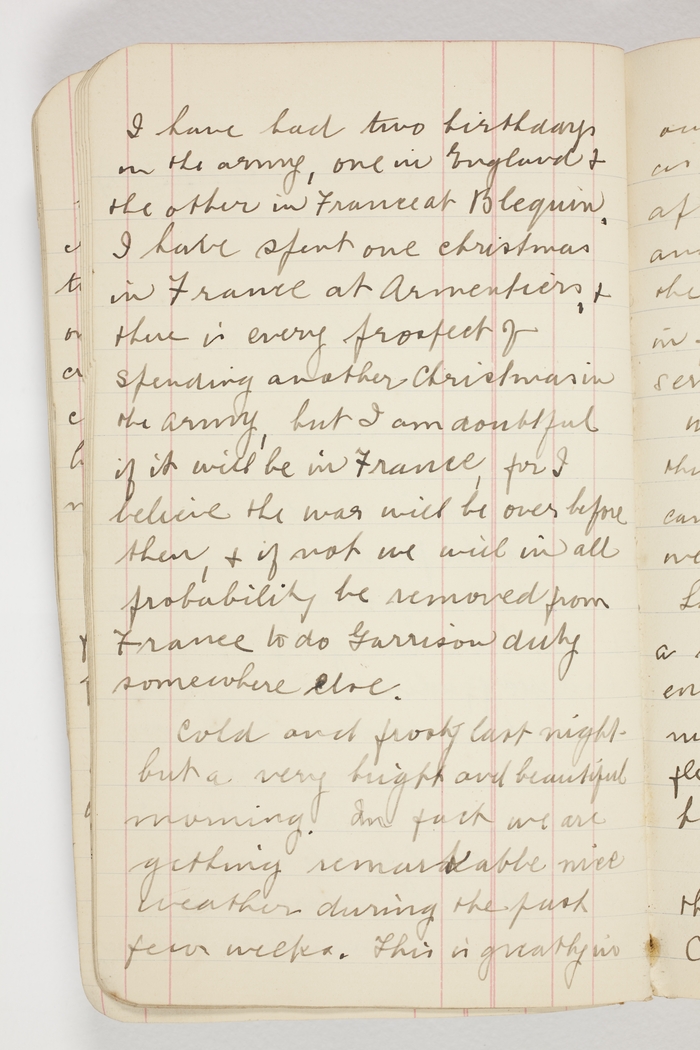 I have had two birthdays
in the army, one in England &
the other in France at Blequin.
I have spent one christmas
in France at Armentiers, &
there is every prospect of
spending another Christmas in
the army, but I am doubtful
if it will be in France, for I
believe the war will be over before
then, & if not we will in all
probability be removed from
France to do Garrison duty
somewhere else.
Cold and frosty last night
but a very bright and beautiful
morning. In fact we are
getting remarkable nice
weather during the past
few weeks. This is greatly in